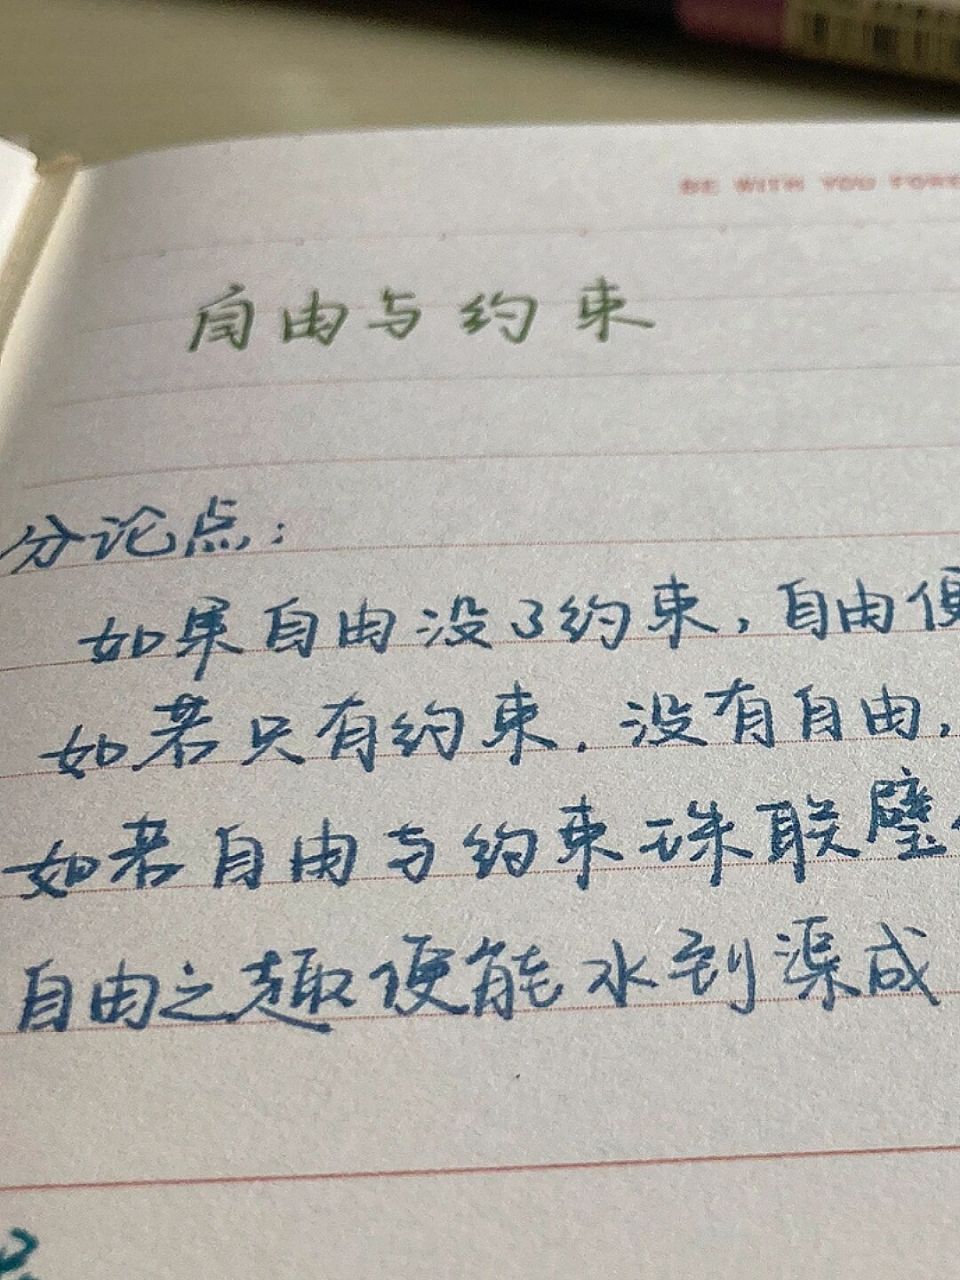 BE WITH YOU
自由与约束
分论点:
如果自由没了约束,自由便
如若只有约束,没有自由,
如若自由与约束珠联璧
自由之趣便能水到渠成